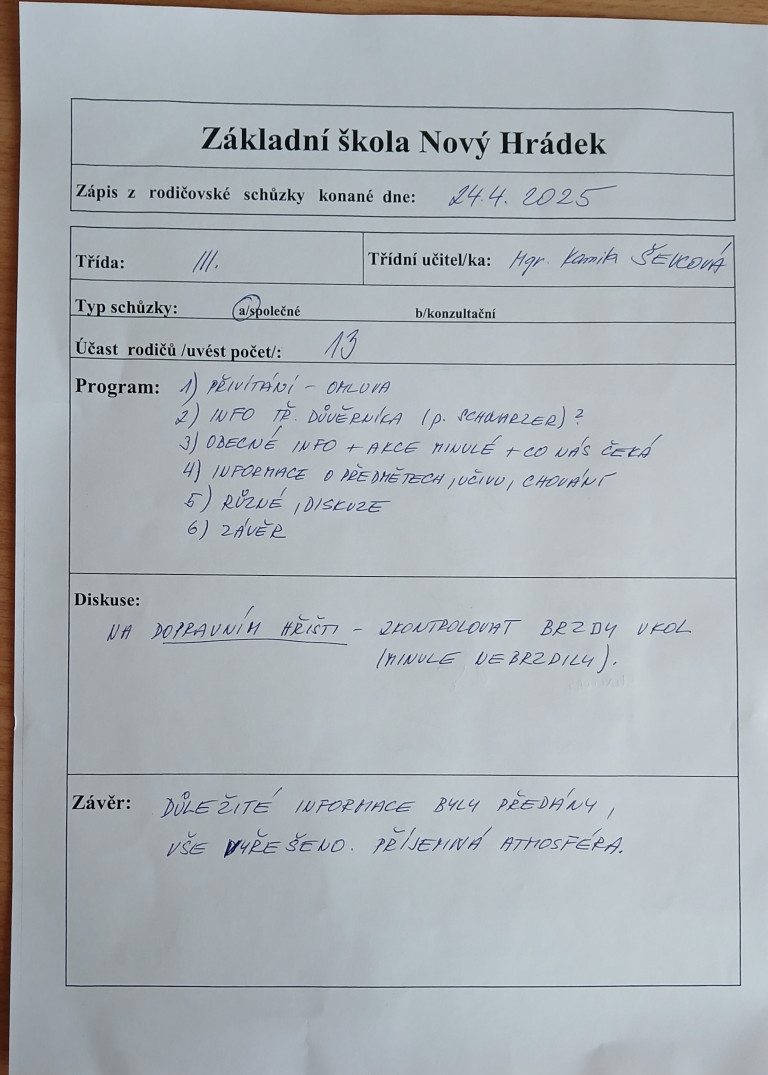 Základní škola Nový Hrádek
Zápis z rodičovské schůzky konané dne: 24.4. 2025
Třída: III. Třídní učitel/ka: Mgr. Kamila ŠEVCOVÁ
Typ schůzky: a/společné b/konzultační
Účast rodičů /uvést počet/: 13
Program: 1) PŘIVÍTÁNÍ - OMLUVA
2) INFO TŘ. DŮVĚRNÍKA (p. SCHWARZER)?
3) OBECNÉ INFO + AKCE MINULÉ + CO NÁS ČEKÁ
4) INFORMACE O PŘEDMĚTECH, UČIVU, CHOVÁNÍ
5) RŮZNÉ, DISKUZE
6) ZÁVĚR
Diskuse:
NA DOPRAVNÍM HŘIŠTI - ZKONTROLOVAT BRZDY U KOL
(MINULE NEBRZDILY).
Závěr: DŮLEŽITÉ INFORMACE BYLY PŘEDÁNY,
VŠE VYŘEŠENO. PŘÍJEMNÁ ATMOSFÉRA.